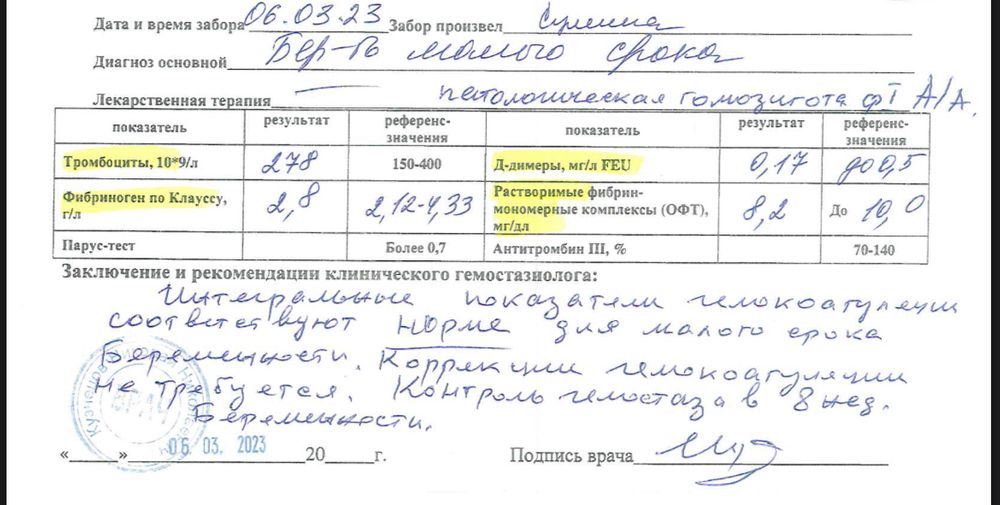 Дата и время забора 06.03.23 Забор произвел
Диагноз основной Бер-ть малого срока
Лекарственная терапия — патологическая гомозигота фI А/А.
показатель результат референс-значения показатель результат референс-значения
Тромбоциты, 10*9/л 278 150-400 Д-димеры, мг/л FEU 0,17 до 0,5
Фибриноген по Клауссу, г/л 2,8 2,12-4,33 Растворимые фибрин-мономерные комплексы (ОФТ), мг/дл 8,2 До 10,0
Парус-тест Более 0,7 Антитромбин III, % 70-140
Заключение и рекомендации клинического гемостазиолога:
Интегральные показатели гемокоагуляции
соответствуют норме для малого срока
Беременности. Коррекции гемокоагуляции
не требуется. Контроль гемостаза в 8 нед.
Беременности.
ВРАЧ
« » 06. 03. 2023 20 г. Подпись врача